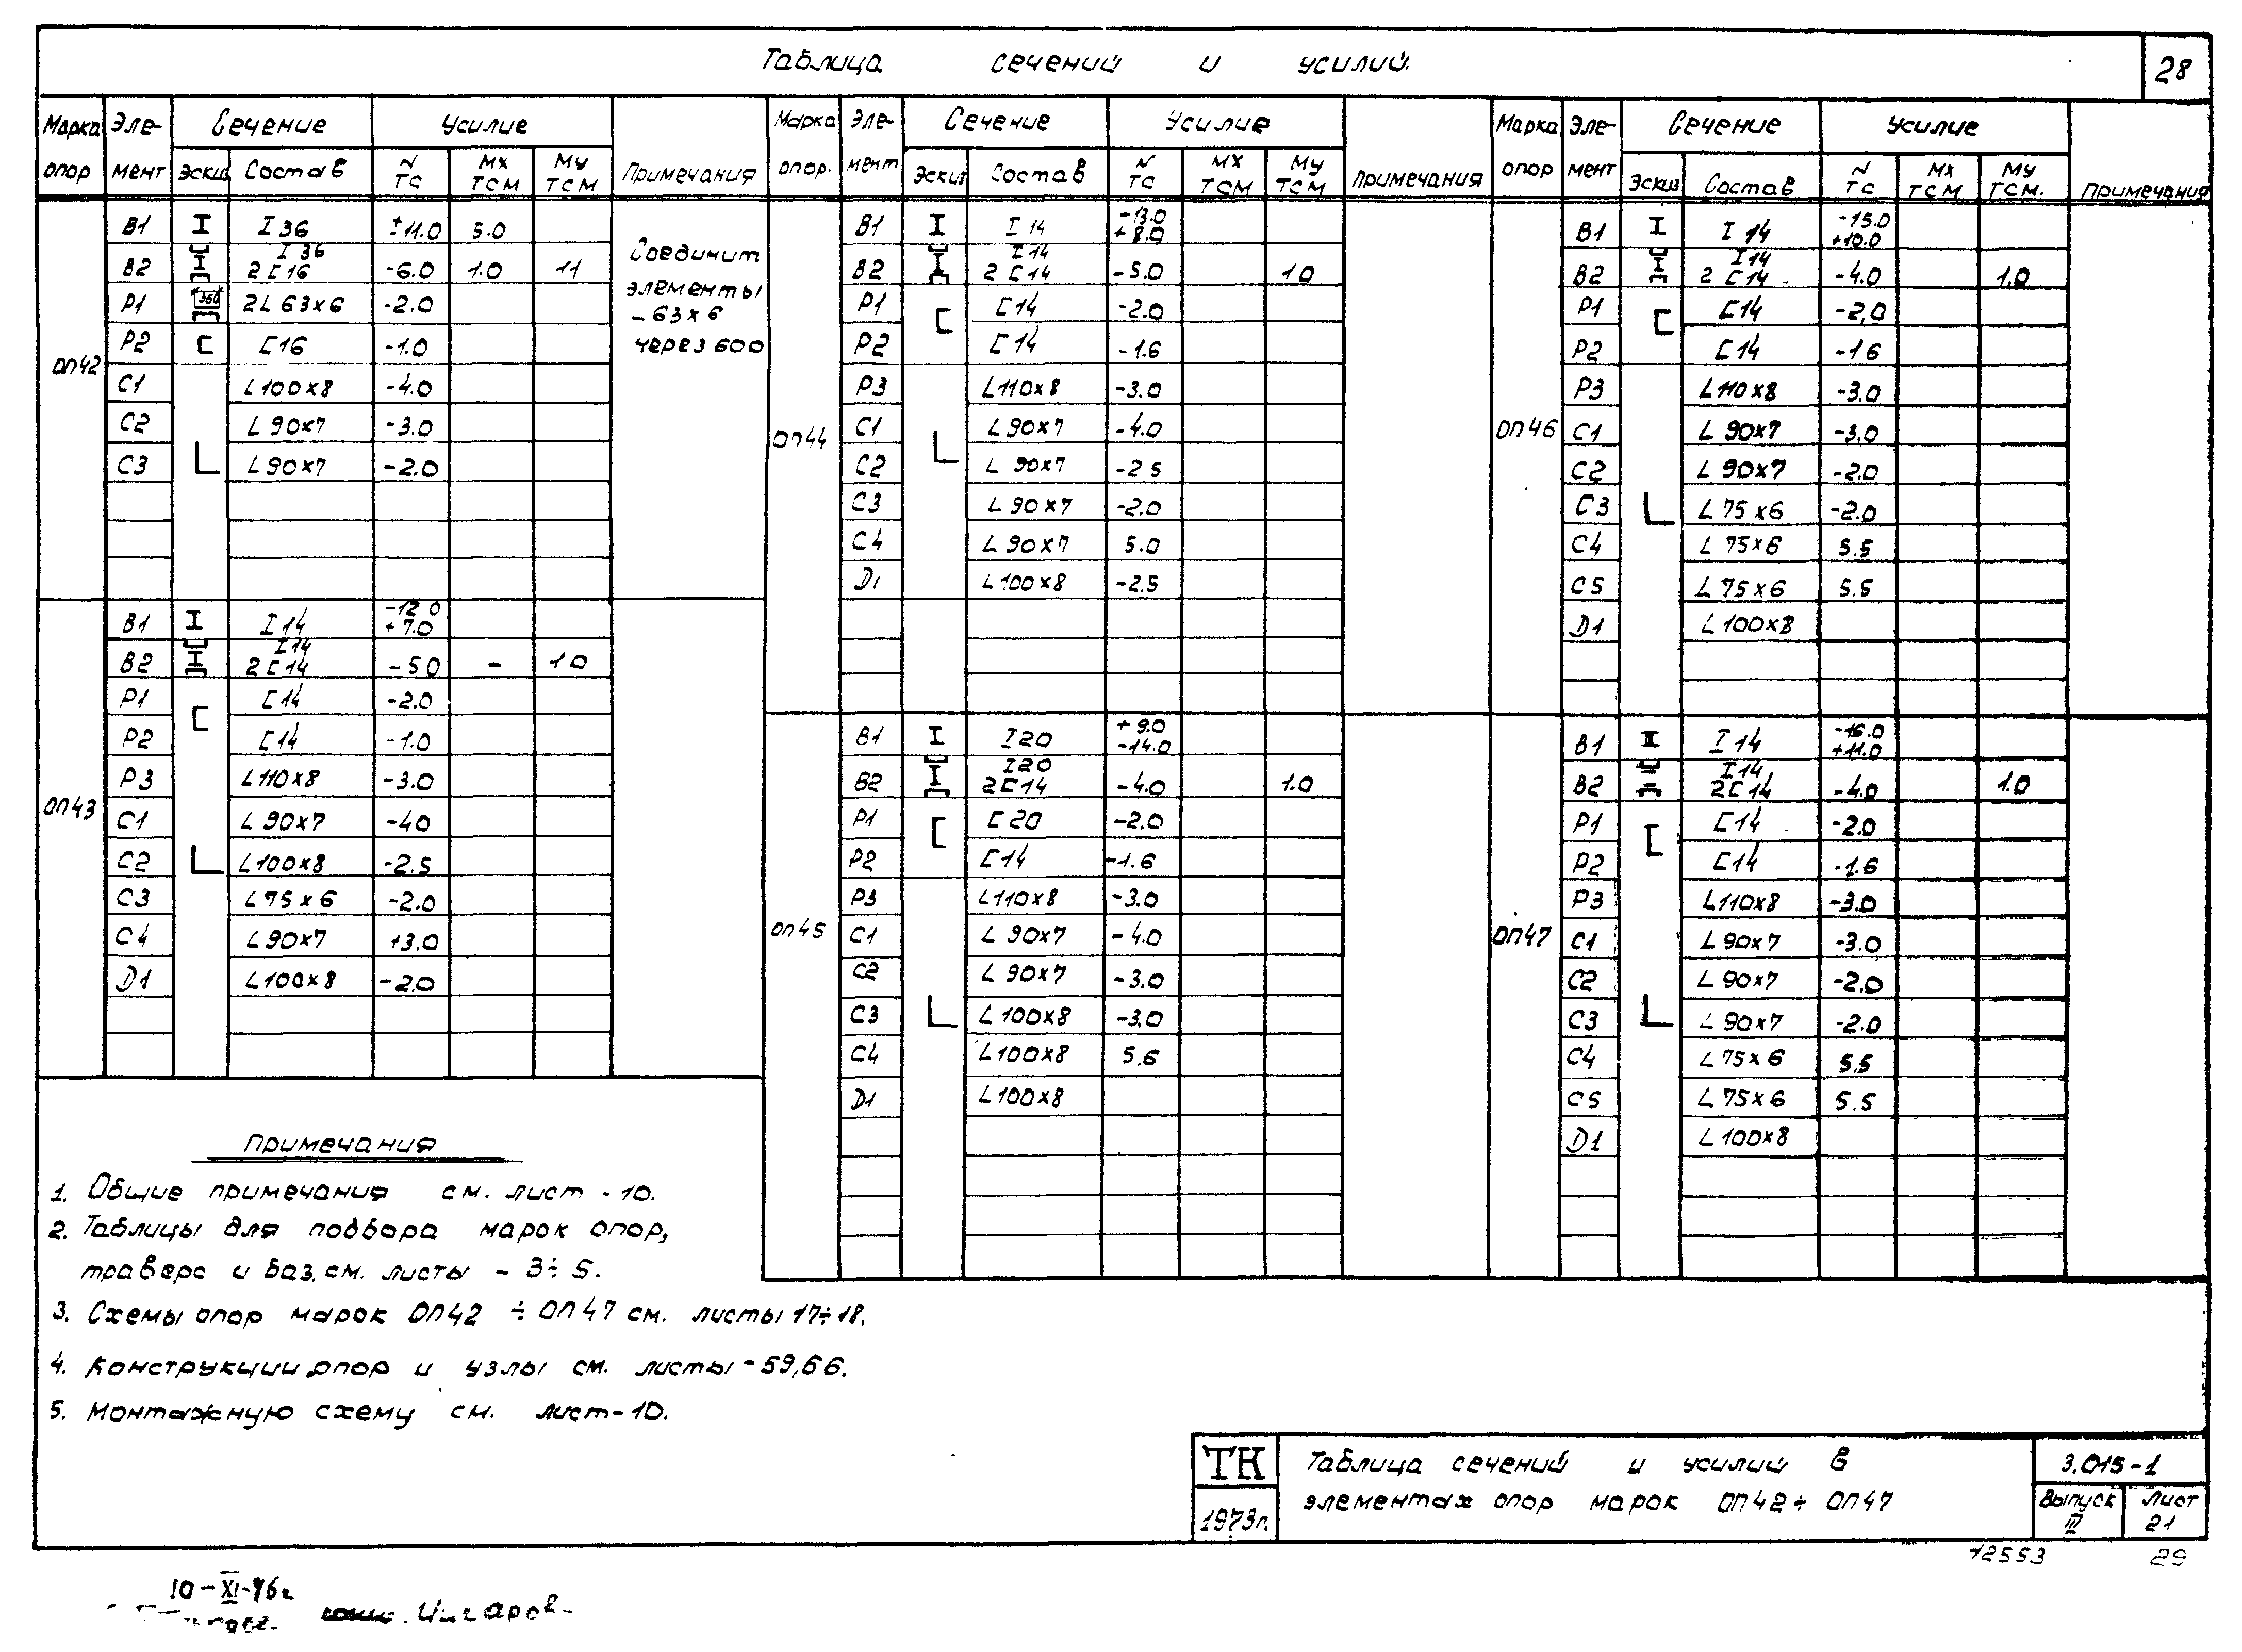 Таблица сечений и усилий.
28
Марка опор | Элемент | Сечение | Усилие | Примечания
Эскиз | Состав | N тс | Mx тсм | My тсм
ОП42
В1 I 36 ±11.0 5.0
В2 I 36 2[16 -6.0 1.0 11
Р1 360 2L 63×6 -2.0
Р2 [16 -1.0
С1 L100×8 -4.0
С2 L 90×7 -3.0
С3 L 90×7 -2.0
Соединит
элементы
-63×6
через 600
ОП43
В1 I 14 -12 0 +7.0
В2 I 14 2[14 -50 - 10
Р1 [14 -2.0
Р2 [14 -1.0
Р3 L110×8 -3.0
С1 L 90×7 -40
С2 L100×8 -2.5
С3 L75×6 -2.0
С4 L90×7 +3.0
D1 L100×8 -2.0
Марка опор. | Элемент | Сечение | Усилие | Примечания
Эскиз | Состав | N тс | Mx тсм | My тсм
ОП44
В1 I 14 -13.0 +8.0
В2 I 14 2[14 -5.0 10
Р1 [14 -2.0
Р2 [14 -1.6
Р3 L110×8 -3.0
С1 L90×7 -4.0
С2 L 90×7 -2 5
С3 L 90×7 -2.0
С4 L 90×7 5.0
D1 L100×8 -2.5
ОП45
В1 I20 +9.0 -14.0
В2 I20 2[14 -4.0 1.0
Р1 [20 -2.0
Р2 [14 -1.6
Р3 L110×8 -3.0
С1 L 90×7 -4.0
С2 L 90×7 -3.0
С3 L 100×8 -3.0
С4 L100×8 5.6
D1 L100×8
Марка опор | Элемент | Сечение | Усилие | Примечания
Эскиз | Состав | N тс | Mx тсм | My тсм.
ОП46
В1 I 14 -15.0 +10.0
В2 I 14 2[14 -4.0 1.0
Р1 [14 -2,0
Р2 [14 -16
Р3 L110×8 -3.0
С1 L 90×7 -3.0
С2 L 90×7 -2.0
С3 L 75×6 -2.0
С4 L 75×6 5.5
С5 L 75×6 5.5
D1 L 100×8
ОП47
В1 I 14 -16.0 +11.0
В2 I 14 2[14 -4.0 1.0
Р1 [14 -2.0
Р2 [14 -1.6
Р3 L110×8 -3.0
С1 L 90×7 -3.0
С2 L 90×7 -2.0
С3 L 90×7 -2.0
С4 L 75×6 5.5
С5 L 75×6 5.5
D1 L 100×8
Примечания
1. Общие примечания см. лист -10.
2. Таблицы для подбора марок опор,
траверс и баз. см. листы - 3÷5.
3. Схемы опор марок ОП42 ÷ ОП47 см. листы 17÷18.
4. Конструкции опор и узлы см. листы - 59,66.
5. Монтажную схему см. лист-10.
ТК
1973г.
Таблица сечений и усилий в
элементах опор марок ОП42÷ ОП47
3.015-1
Выпуск III
Лист 21
12553 29
10-XI-76г